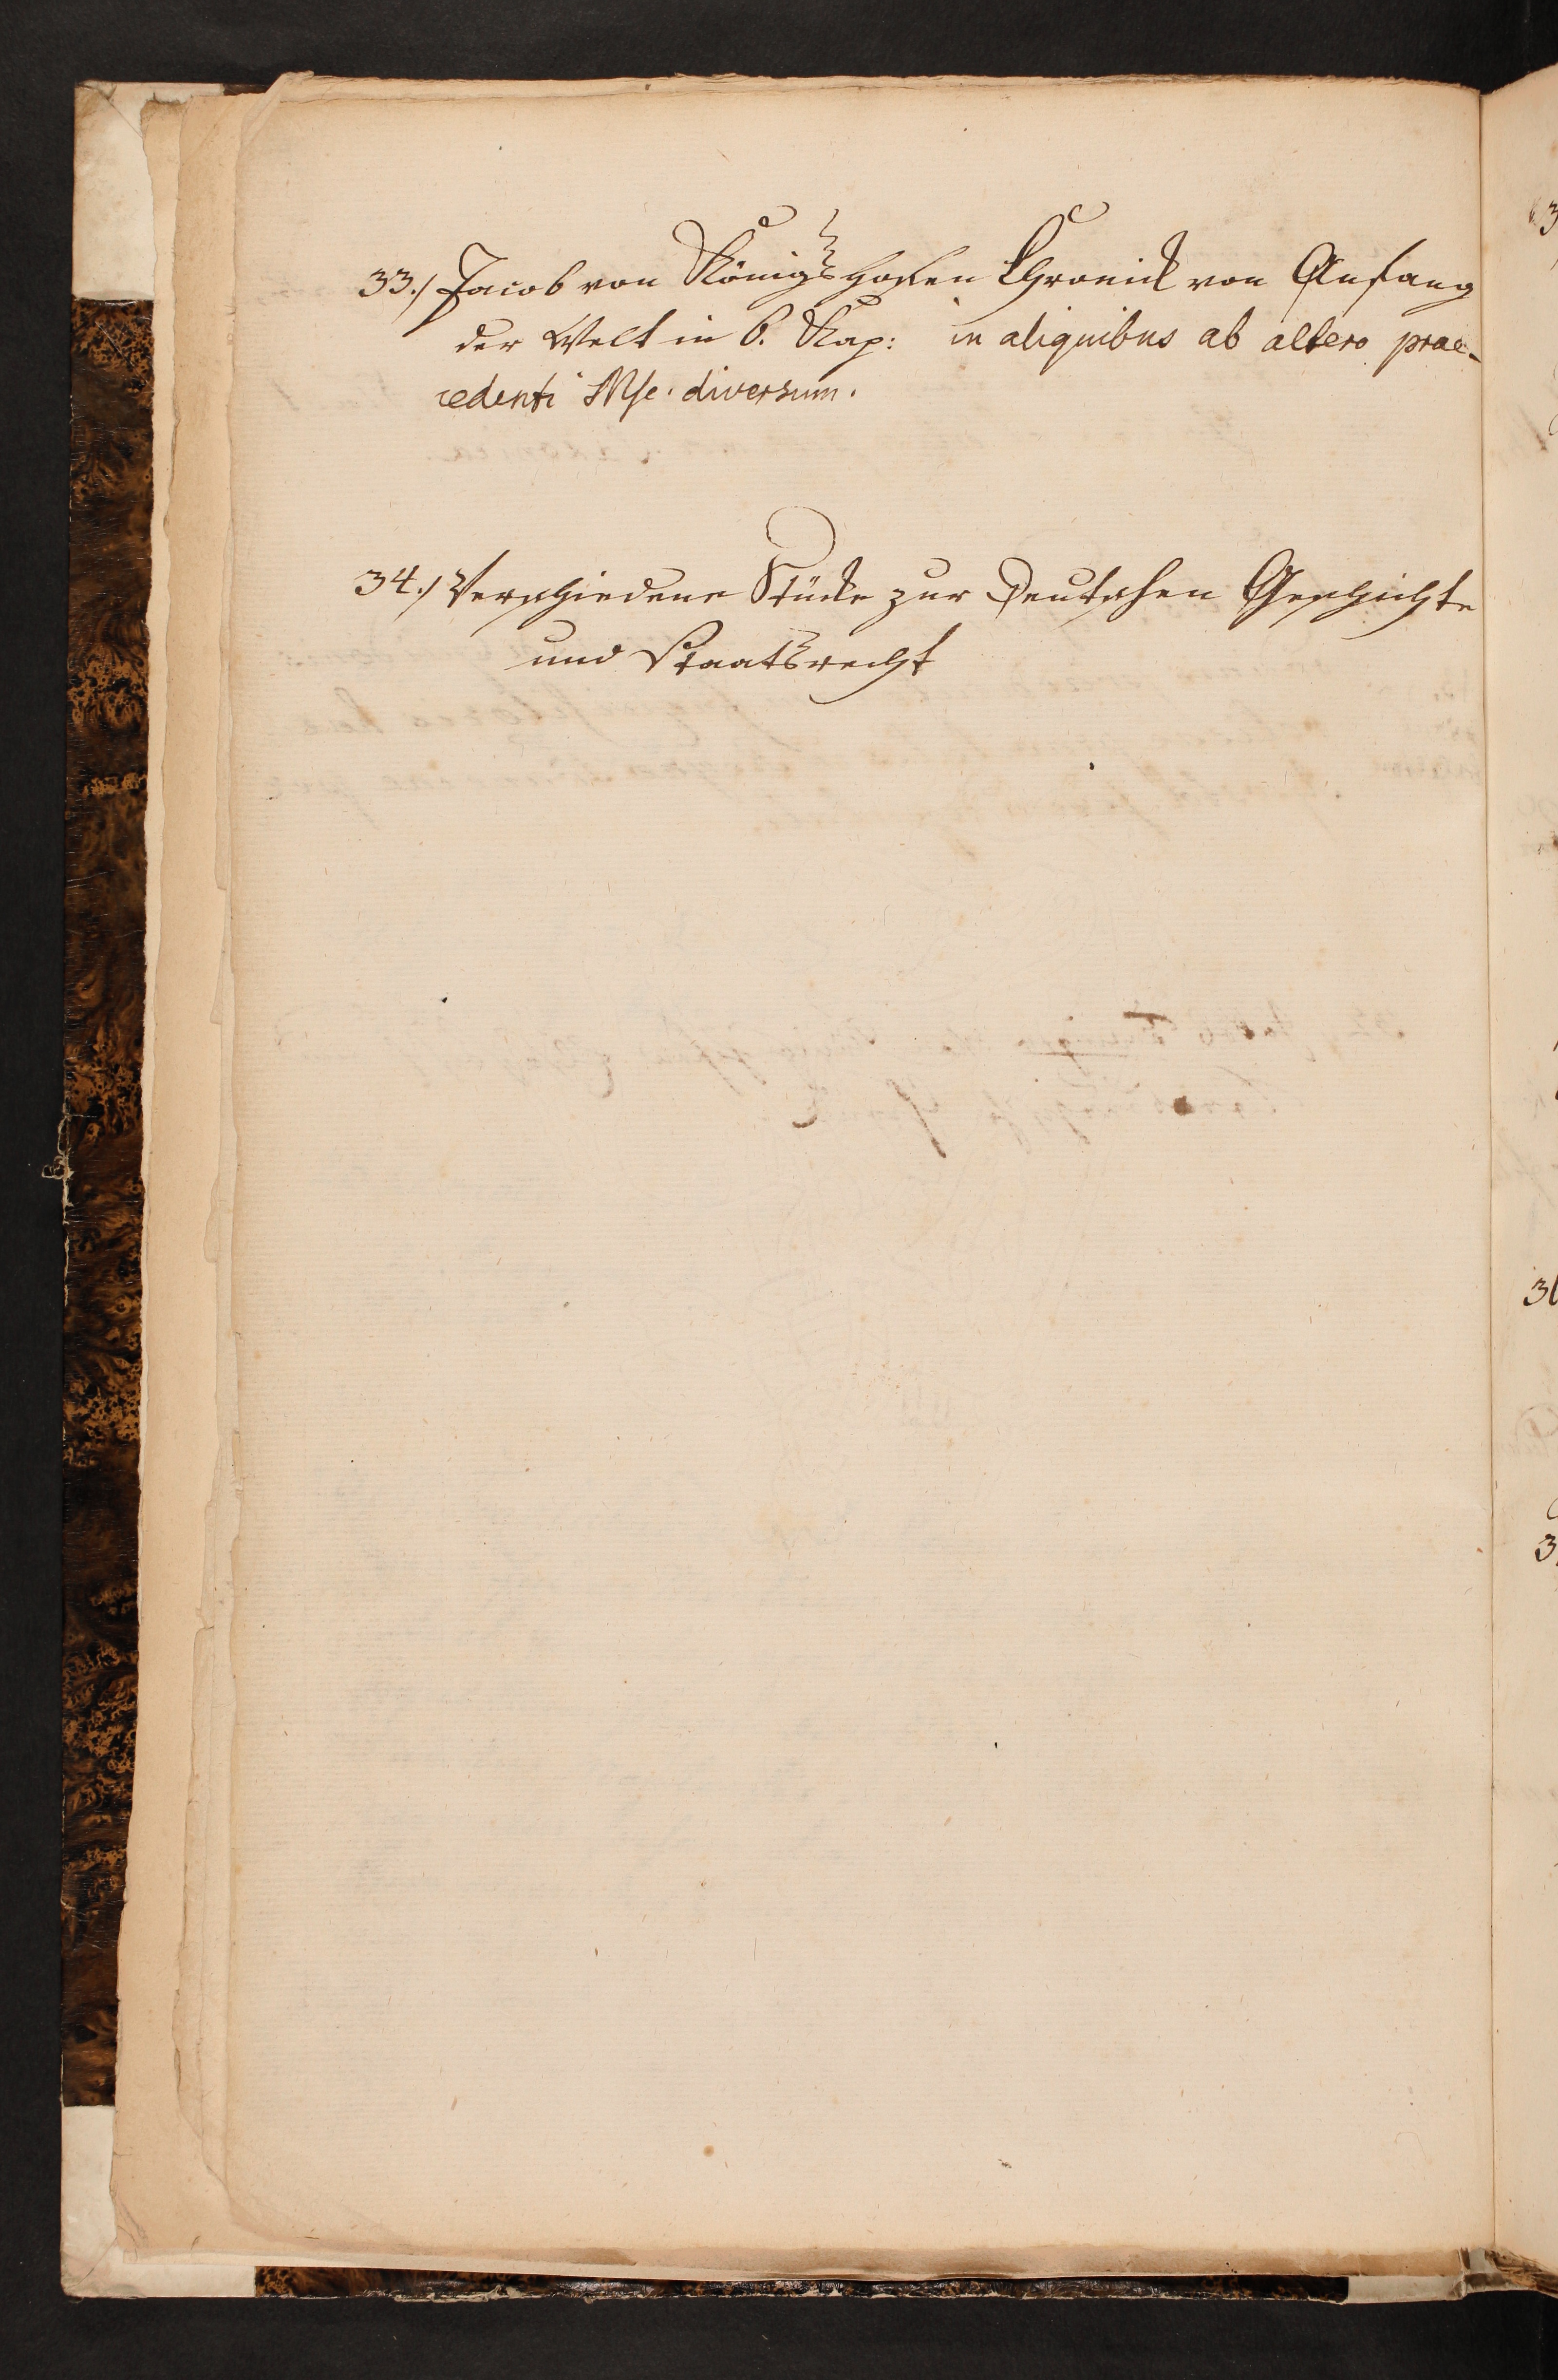 33.) Jacob von Königshofen Chronick von Anfang
der Welt in 6. Kap: in aliquibus ab altero prae-
cedenti Msc. diversum.
34.) Verschiedene Stücke zur Deutschen Geschichte
und Staatsrecht